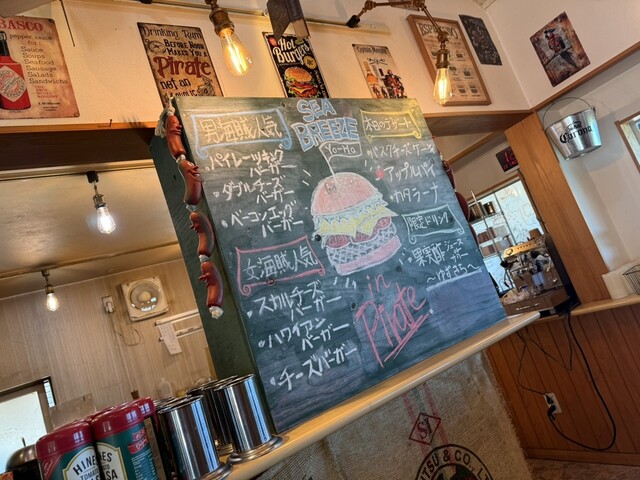 TABASCO
pepper sauce
Soups
Seafood
Sausage
Salads
Sandwichs
Drinking Rum
BEFORE NOON
MAKES YOU A
Pirate
not an
Hot
Burgers
ESPRESSO
Corona
SEA
BREEZE
Yo-Ho
男海賊人気
・パイレーツキング
バーガー
・ダブルチーズ
バーガー
・ベーコンエッグ
バーガー
女海賊人気
・スカルチーズ
バーガー
・ハワイアン
バーガー
・チーズバーガー
本日のデザート
・バスクチーズケーキ
・アップルパイ
・カタラーナ
限定ドリンク
・果実酢
ジュース
サワー
～ゆずみつ～
in
Pirate
HEINZ
TOMATO
& CO., L